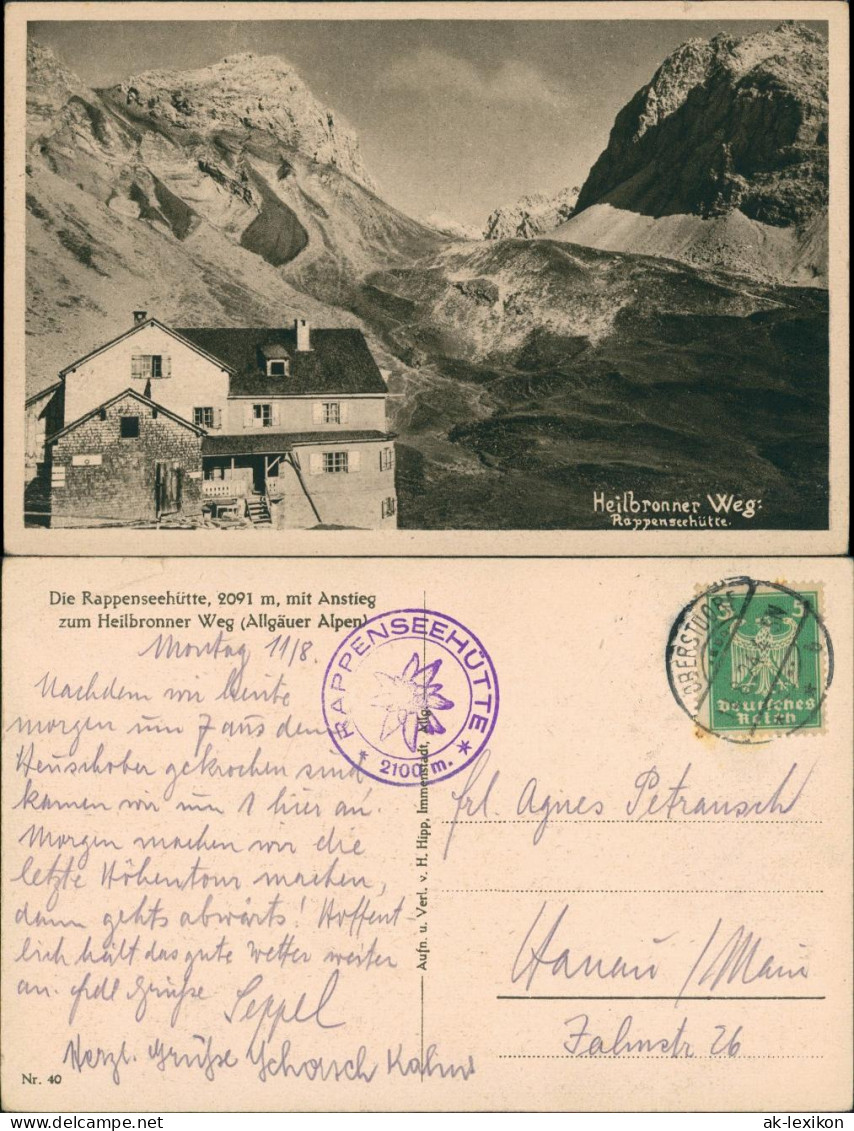 Heilbronner Weg:
Rappenseehütte.
Die Rappenseehütte, 2091 m, mit Anstieg
zum Heilbronner Weg (Allgäuer Alpen)
RAPPENSEEHÜTTE
* 2100 m. *
OBERSTDORF
5 5
Deutsches
Reich
Montag 11/8.
Nachdem wir heute
morgen um 7 aus dem
Heuschober gekrochen sind
kamen wir um 1 hier an.
Morgen machen wir die
letzte Höhentour machen,
dann gehts abwärts! Hoffent
lich hält das gute Wetter weiter
an. Grüße
Seppel
Herzl. Grüße Schorsch
Aufn. u. Verl. v. H. Hipp, Immenstadt, Allg.
Frl. Agnes Petrausch
Hanau / Main
26
Nr. 40
ak-lexikon.com